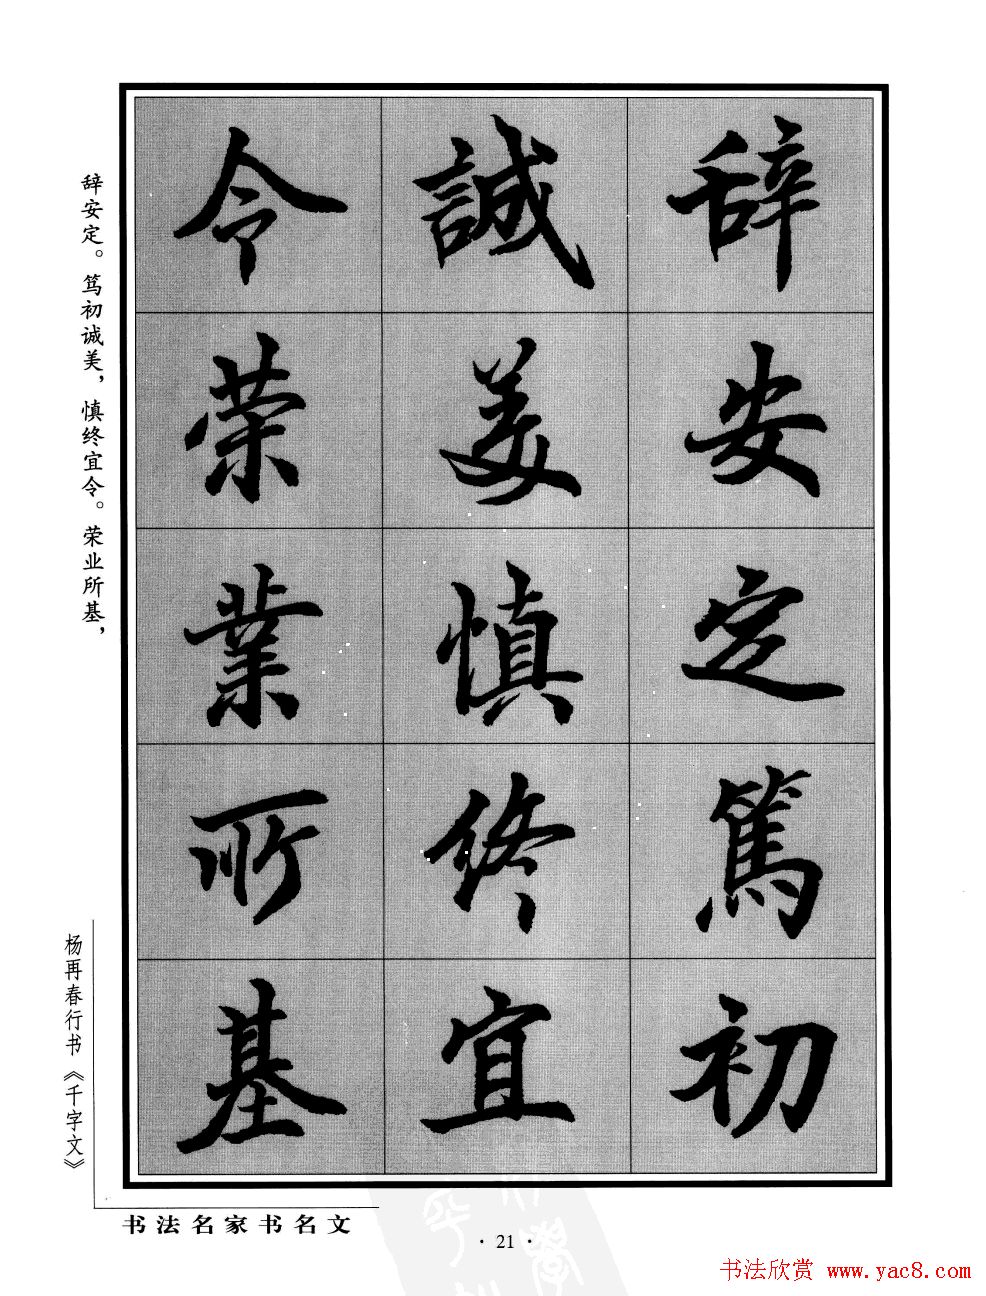 辞安定篤初
誠美慎终宜
令荣業所基
辞安定。笃初诚美，慎终宜令。荣业所基，
杨再春行书《千字文》
书法名家书名文
· 21 ·
书法欣赏 www.yac8.com